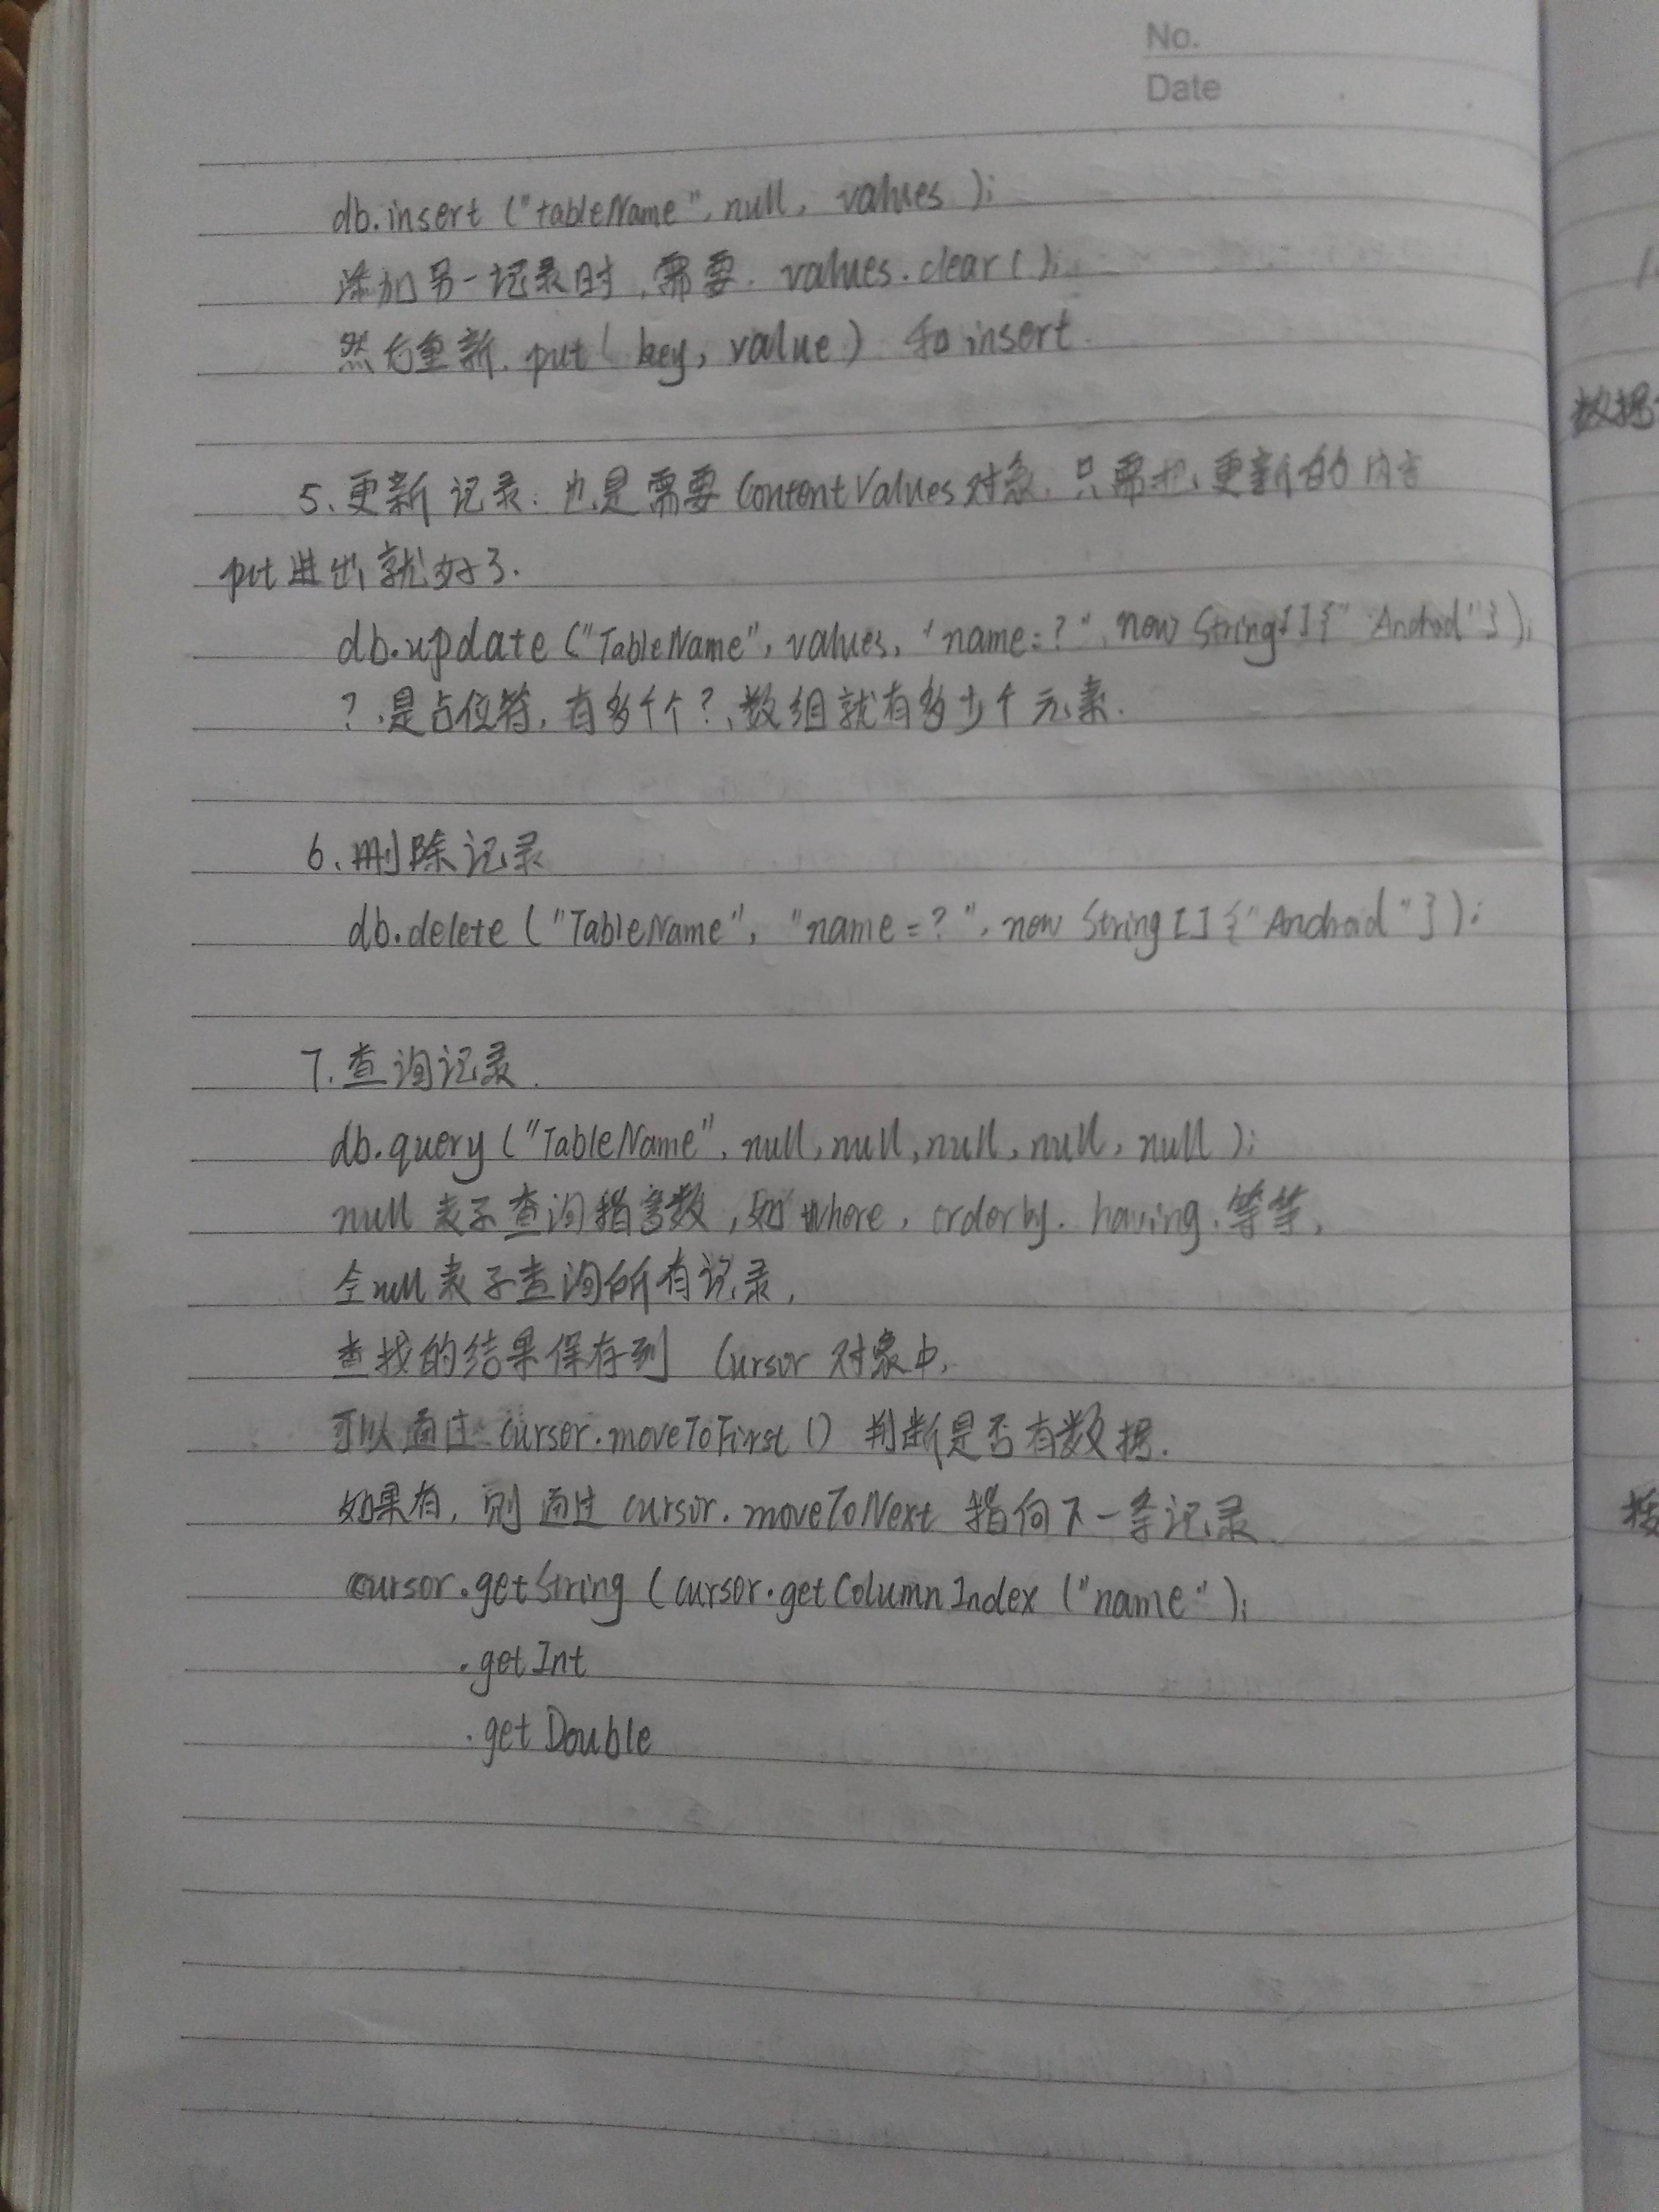 No.
Date
db.insert ("tableName", null, values );
添加另一记录时,需要. values.clear();
然后重新. put( key, value) 和 insert.
5、更新记录: 也是需要 ContentValues对象, 只需把更新的内容
put进去就好了.
db.update ("TableName", values, "name=?", new String[]{"Android"});
?、是占位符, 有多个个?、数组就有多少个元素.
6、删除记录
db.delete ("TableName", "name=?", new String[]{"Android"});
7.查询记录.
db.query ("TableName", null, null, null, null, null );
null 表示查询 参数,如 where, orderby. having.等等,
全null表示查询所有记录,
查找的结果保存到 Cursor 对象中,
可以通过 cursor.moveToFirst() 判断是否有数据.
如果有, 则通过 cursor.moveToNext 指向下一条记录
cursor.getString (cursor.getColumnIndex ("name");
.getInt
.getDouble
数据